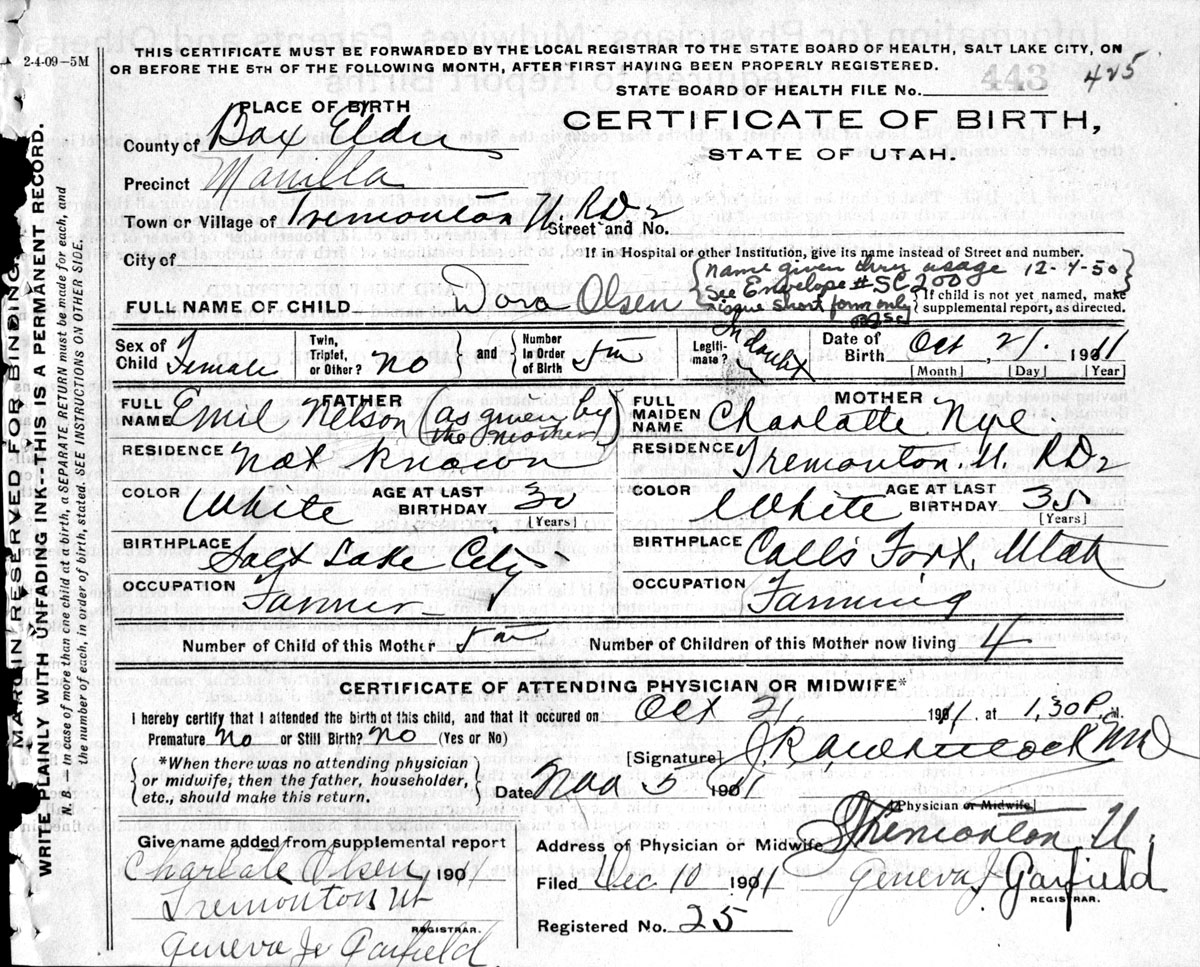 2-4-09-5M
THIS CERTIFICATE MUST BE FORWARDED BY THE LOCAL REGISTRAR TO THE STATE BOARD OF HEALTH, SALT LAKE CITY, ON
OR BEFORE THE 5TH OF THE FOLLOWING MONTH, AFTER FIRST HAVING BEEN PROPERLY REGISTERED.
STATE BOARD OF HEALTH FILE No. 443 425
PLACE OF BIRTH
CERTIFICATE OF BIRTH,
STATE OF UTAH.
County of Box Elder
Precinct Manilla
Town or Village of Tremonton U RD2 Street and No.
City of
If in Hospital or other Institution, give its name instead of Street and number.
FULL NAME OF CHILD Dora Olsen
{name given thru usage 12-4-50
See Envelope # SC 2000
issue short form only
{If child is not yet named, make
supplemental report, as directed.
Sex of Child Female
Twin, Triplet, or Other? No
and
Number In Order of Birth 5th
Legitimate?
Date of Birth Oct, 21. 1911
[Month] [Day] [Year]
FATHER
FULL NAME Emil Nelson (as given by the mother)
RESIDENCE Not Known
COLOR White AGE AT LAST BIRTHDAY 30 [Years]
BIRTHPLACE Salt Lake City
OCCUPATION Farmer
MOTHER
FULL MAIDEN NAME Charlotte Nye
RESIDENCE Tremonton. U. RD2
COLOR White AGE AT LAST BIRTHDAY 35 [Years]
BIRTHPLACE Calls Fort, Utah
OCCUPATION Farming
Number of Child of this Mother 5th Number of Children of this Mother now living 4
CERTIFICATE OF ATTENDING PHYSICIAN OR MIDWIFE*
I hereby certify that I attended the birth of this child, and that it occured on Oct 21, 1911, at 1,30 P.M.
Premature No or Still Birth? No (Yes or No)
[Signature]
{*When there was no attending physician
or midwife, then the father, householder,
etc., should make this return.}
Date Nov 5 1911
(Physician or Midwife)
Give name added from supplemental report
Charlotte Olsen, 1911
Tremonton Ut
REGISTRAR.
Geneva J. Garfield
Address of Physician or Midwife Tremonton U.
Filed Dec 10 1911 Geneva J. Garfield
REGISTRAR.
Registered No. 25
MARGIN RESERVED FOR BINDING
WRITE PLAINLY WITH UNFADING INK--THIS IS A PERMANENT RECORD.
N. B. — In case of more than one child at a birth, a SEPARATE RETURN must be made for each, and
the number of each, in order of birth, stated. SEE INSTRUCTIONS ON OTHER SIDE.